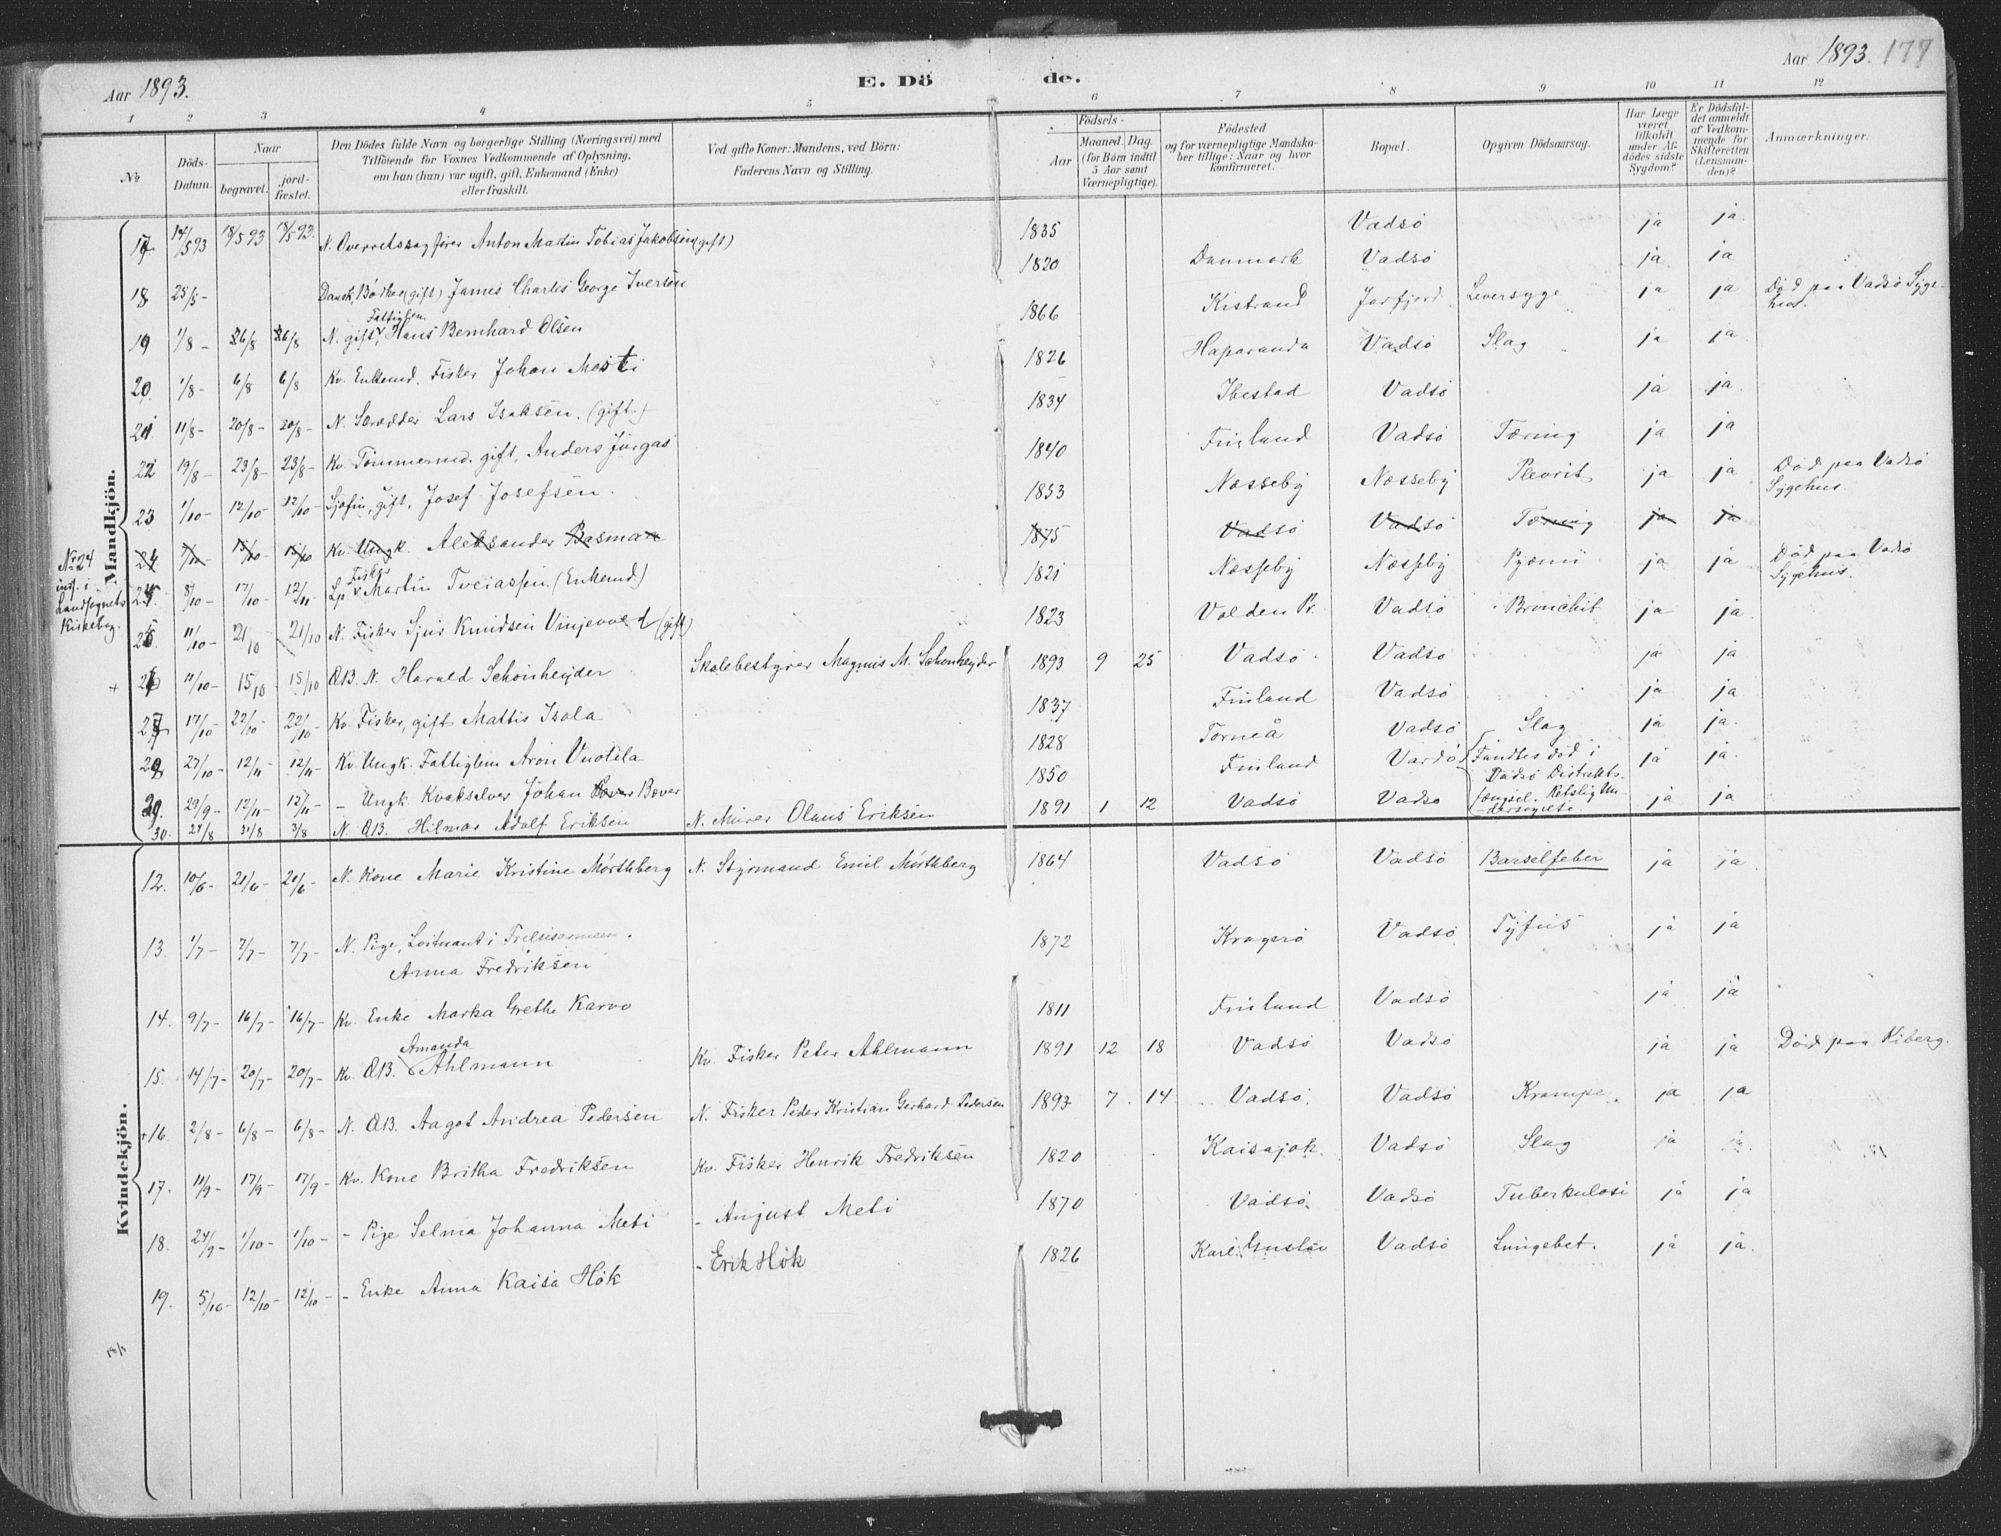 Aar 1893.
E. Döde.
Aar 1893. 177
1 2 3 4 5 6 7 8 9 10 11 12
No.
Döds-Datum.
Naar
begravet.
jord-fæstet.
Den Dödes fulde Navn og borgerlige Stilling (Næringsvei) med
Tilföiende for Voxnes Vedkommende af Oplysning,
om han (hun) var ugift, gift, Enkemand (Enke)
eller fraskilt.
Ved gifte Koner: Mandens, ved Börn:
Faderens Navn og Stilling.
Födsels-
Aar
Maaned. Dag.
(for Börn indtil
5 Aar samt
Værnepligtige).
Födested
og for værnepligtige Mandska-
ber tillige: Naar og hvor
konfirmeret.
Bopæl.
Opgiven Dödsaarsag.
Har Læge
været
tilkaldt
under Af-
dödes sidste
Sygdom?
Er Dödsfal-
det anmeldt
af Vedkom-
mende for
Skifteretten
(Lensman-
den)?
Anmærkninger.
Mandkjön.
17 14/5 93 18/5 93 18/5 93. N. Overretssagfører Anton Martin Tobias Jakobsen (gift) 1835 Vadsö ja ja.
18 25/5 - Dansk, Bødker (gift) James Charles George Iversen 1820 Danmark Vadsö ja ja
19 1/8 - 26/8 26/8 N. gift, Fattiglem. Hans Bernhard Olsen 1866 Kistrand Jarfjord Leversyge ja ja Död paa Vadsö Syge-
hus.
20. 1/8 - 6/8 6/8 Kv. Enkemd. Fisker Johan Mosti 1826 Haparanda Vadsö Slag ja ja.
21. 11/8 - 20/8 - 20/8 - N. Skrædder Lars Isaksen. (gift.) 1834 Ibestad Vadsö ja ja.
22 19/8 - 23/8 - 23/8 - Kv. Tömmermd. gift, Anders Jürgas 1840 Finland Vadsö Tæring ja ja
23 1/10 - 12/10 - 12/10 - Sjøfin, gift, Josef Josefsen. 1853 Næsseby Næsseby Plevrit ja ja Död paa Vadsö
Sygehus.
24 7/10 - 15/10 15/10 Kv. Ungk. Aleksander Basman 1875 Vadsö Vadsö Tæring ja ja
No 24
indf. i
Landsognets
Kirkebog.
24 8/10 - 17/10 - 12/11 Lp. Fisker Martin Tveiassen. (Enkemd.) 1821 Næsseby Næsseby Pyæmi ja ja Död paa Vadsö
Sygehus.
25 11/10 - 21/10 21/10 N. Fisker Sjur Knudsen Vinjevold (gift) 1823 Volden Pr. Vadsö Bronchit ja ja.
+ 26 11/10 - 15/10 15/10 ÆB. N. Harald Schönheyder Skolebestyrer Magnus M. Schönheyder 1893 9 25 Vadsö Vadsö ja ja
27 17/10 - 22/10 - 22/10 - Kv. Fisker, gift Mattis Isola 1837 Finland Vadsö ja ja
28 27/10 - 12/11 - 12/11 - Kv. Ungk. Fattiglem Aron Vuotila 1828 Torneå Vadsö Slag ja ja.
29. 29/9 - 12/11 - 12/11 - - Ungk. Kvaksalver Johan Bæver 1850 Finland Vardö Fandtes död i
Vadsö Distrikts-
fængsel. Retslig Un-
dersøgelse. ja ja.
30. 24/8 31/8 3/8 N. ÆB. Hilmar Adolf Eriksen N. Murer Olaus Eriksen 1891 1 12 Vadsö Vadsö ja ja
Kvindekjön.
12. 10/6 - 21/6 - 21/6 - N. Kone Marie Kristine Mörthberg N. Styrmand Emil Mörthberg 1864 Vadsö Vadsö Barselfeber ja ja
13. 1/7 - 7/7 - 7/7 - N. Pige, Loitnant i Frelsesarmeen.
Anna Fredriksen 1872 Kragerö Vadsö Tyfus ja ja
14. 9/7 - 16/7 - 16/7 - Kv. Enke Marka Grethe Karvo 1811 Finland Vadsö ja ja
15. 14/7 - 20/7 - 20/7 - Kv. ÆB. Amanda Ahlmann Kv. Fisker Peter Ahlmann 1891 12 18 Vadsö Vadsö ja ja Död paa Kiberg.
+ 16. 2/8 - 6/8 - 6/8 - N. ÆB. Aagot Andrea Pedersen N. Fisker Peder Kristian Gerhard Pedersen 1893 7 14 Vadsö. Vadsö Krampe. ja ja
17. 11/9 - 17/9 - 17/9 - Kv. Kone Britha Fredriksen Kv. Fisker Henrik Fredriksen 1820 Kaisajok. Vadsö Slag ja ja.
18. 24/9 - 1/10 - 1/10 - - Pige Selma Johanna Meti - August Meti 1870 Vadsö. Vadsö Tuberkulosi ja ja
19. 5/10 - 12/10 - 12/10 - - Enke Anna Kaisa Hök - Erik Hök 1826 Karl Gustav Vadsö Lungebet. ja ja.